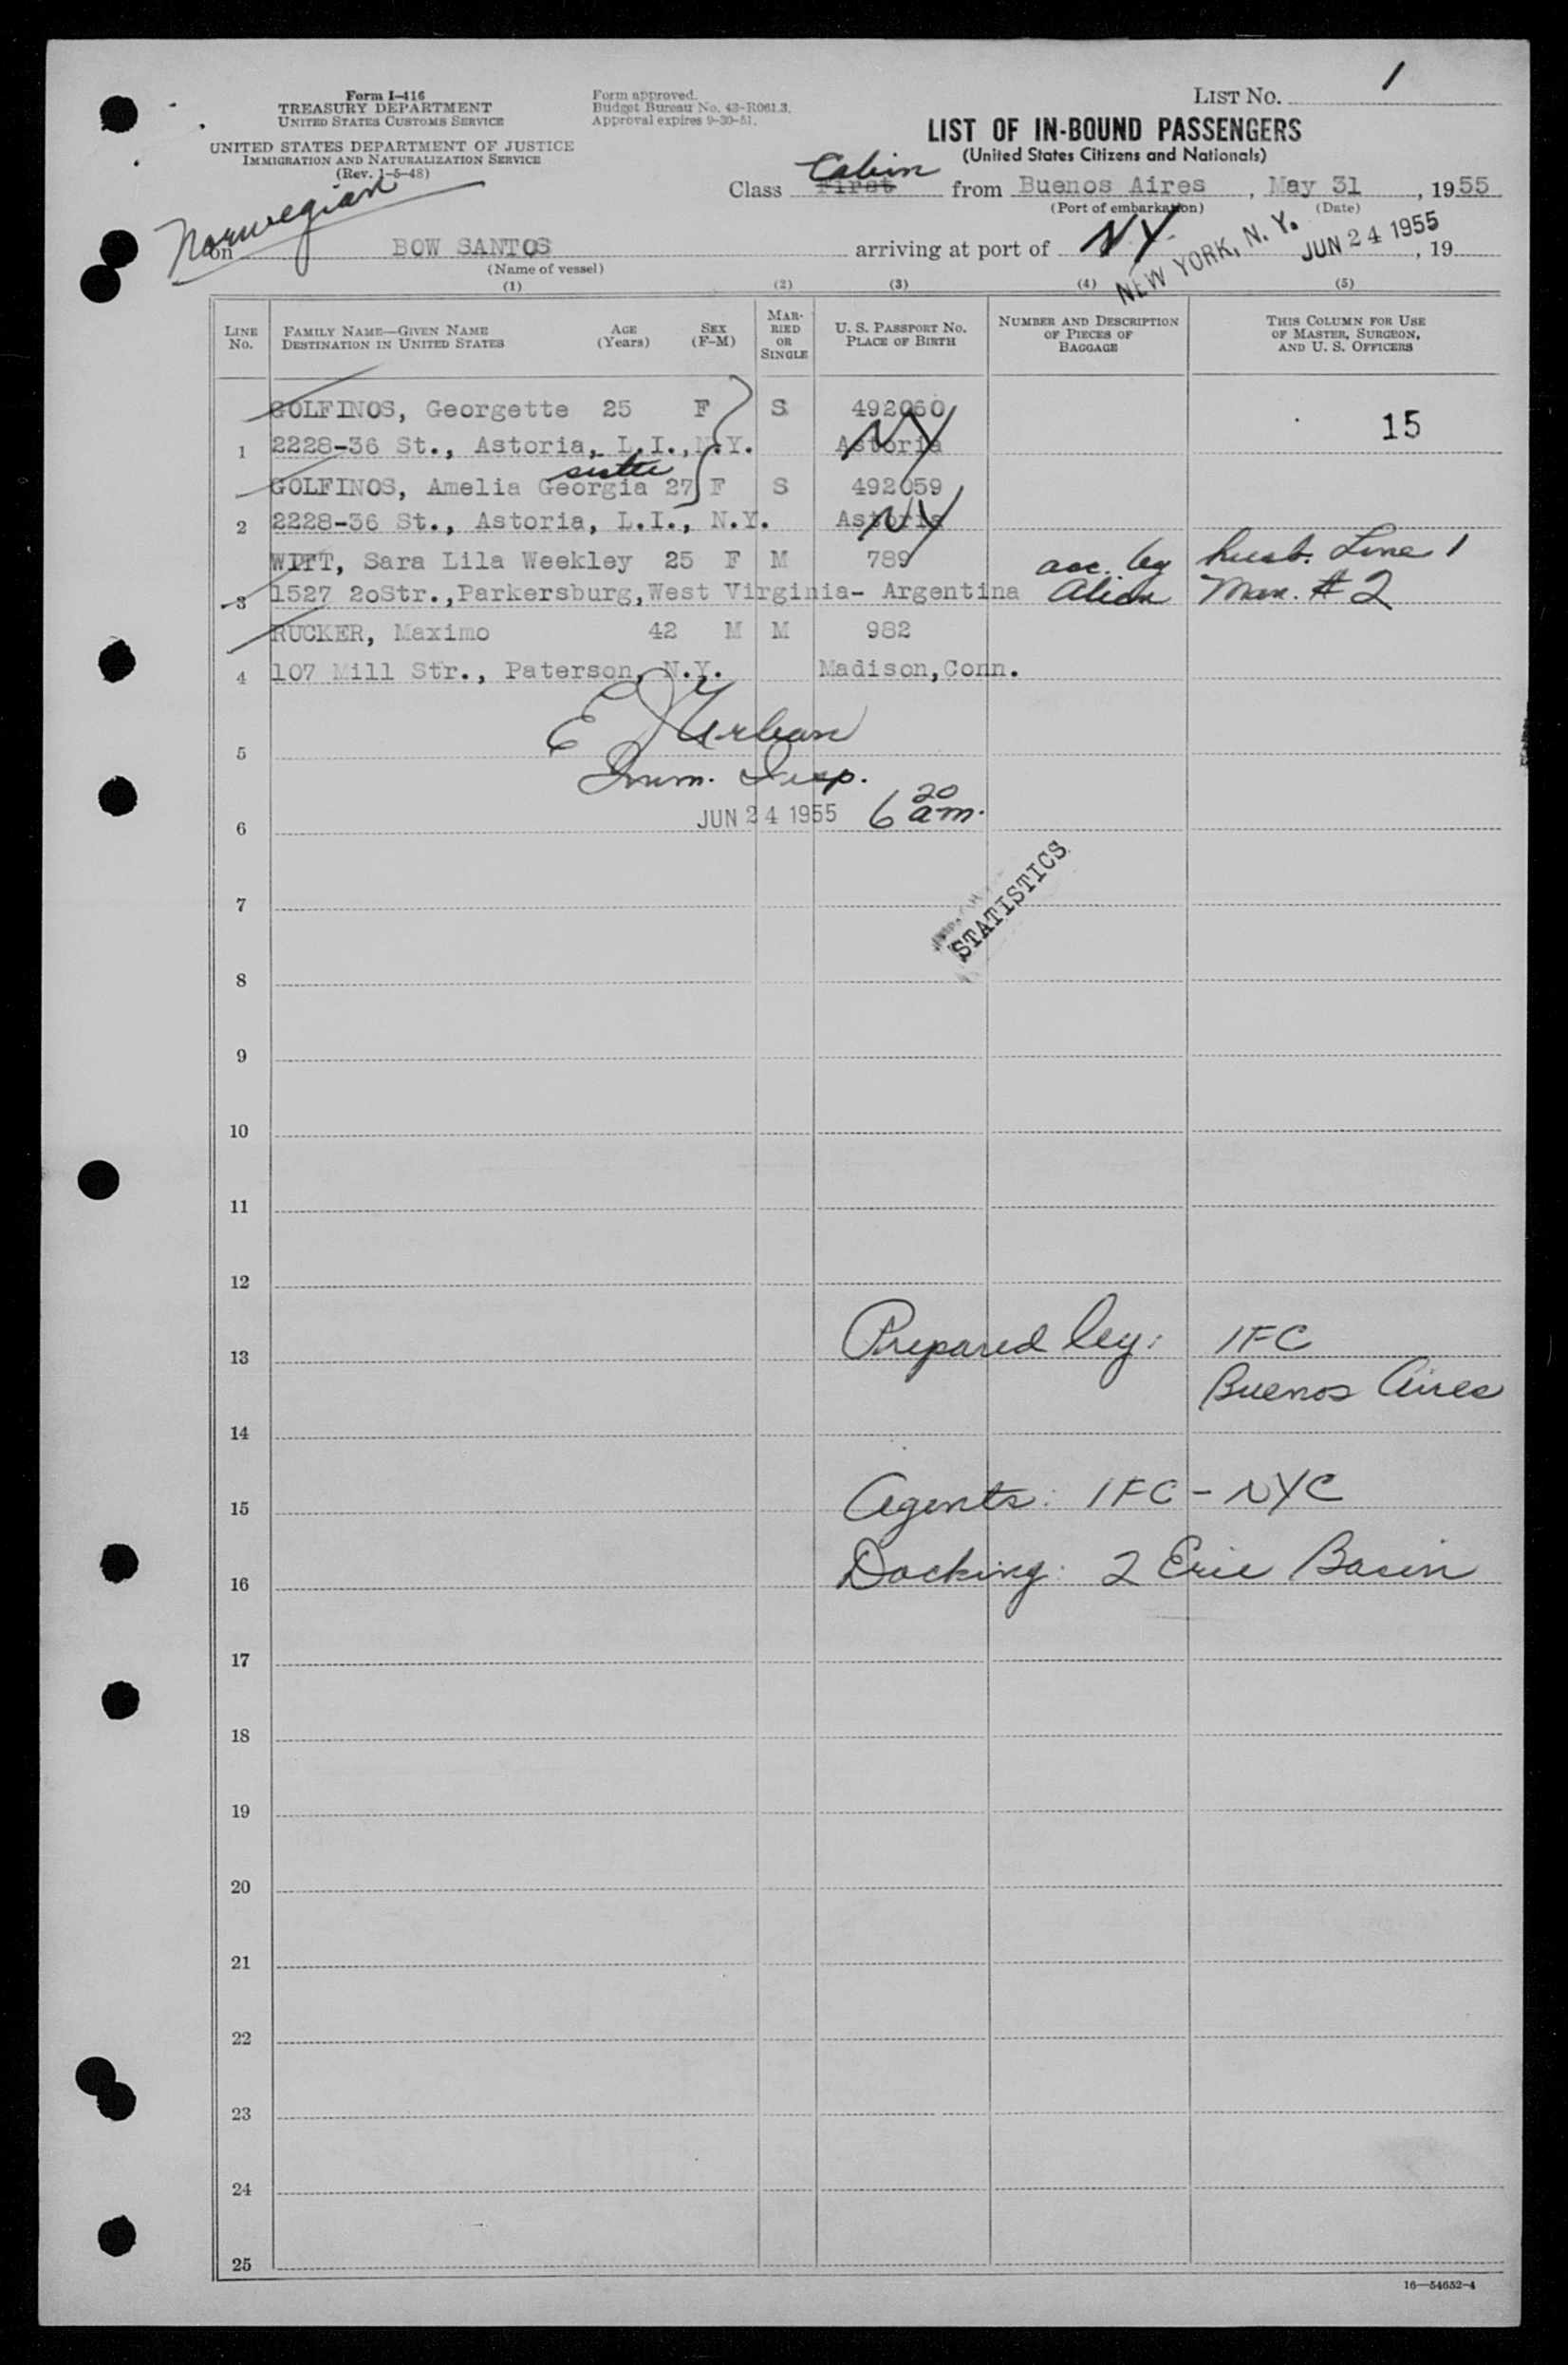 1
Form I-416
TREASURY DEPARTMENT
UNITED STATES CUSTOMS SERVICE
UNITED STATES DEPARTMENT OF JUSTICE
IMMIGRATION AND NATURALIZATION SERVICE
(Rev. 1-5-48)
Form approved.
Budget Bureau No. 43-R061.3.
Approval expires 9-30-51.
LIST NO.
LIST OF IN-BOUND PASSENGERS
(United States Citizens and Nationals)
Cabin
Class First from Buenos Aires, May 31, 1955
(Port of embarkation) (Date)
Norwegian
on BOW SANTOS arriving at port of N.Y. , 19
NEW YORK, N. Y. JUN 24 1955
(Name of vessel)
(1) (2) (3) (4) (5)
LINE NO.
FAMILY NAME—GIVEN NAME
DESTINATION IN UNITED STATES
AGE (Years)
SEX (F-M)
MARRIED OR SINGLE
U. S. PASSPORT NO.
PLACE OF BIRTH
NUMBER AND DESCRIPTION OF PIECES OF BAGGAGE
THIS COLUMN FOR USE OF MASTER, SURGEON, AND U. S. OFFICERS
GOLFINOS, Georgette 25 F S 492060
15
1 2228-36 St., Astoria, L.I., N.Y. Astoria NY
sister
GOLFINOS, Amelia Georgia 27 F S 492059
2 2228-36 St., Astoria, L.I., N.Y. Astoria NY
WITT, Sara Lila Weekley 25 F M 789 acc. by husb. Line 1
3 1527 20Str.,Parkersburg,West Virginia- Argentina Alien Man. # 2
RUCKER, Maximo 42 M M 982
4 107 Mill Str., Paterson, N.Y. Madison,Conn.
E J Urban
5
Imm. Insp.
6 JUN 24 1955 6 20 am.
STATISTICS
7
8
9
10
11
12
13 Prepared by: IFC
Buenos Aires
14
15 Agents: IFC - NYC
16 Docking: 2 Erie Basin
17
18
19
20
21
22
23
24
25
16—54652-4